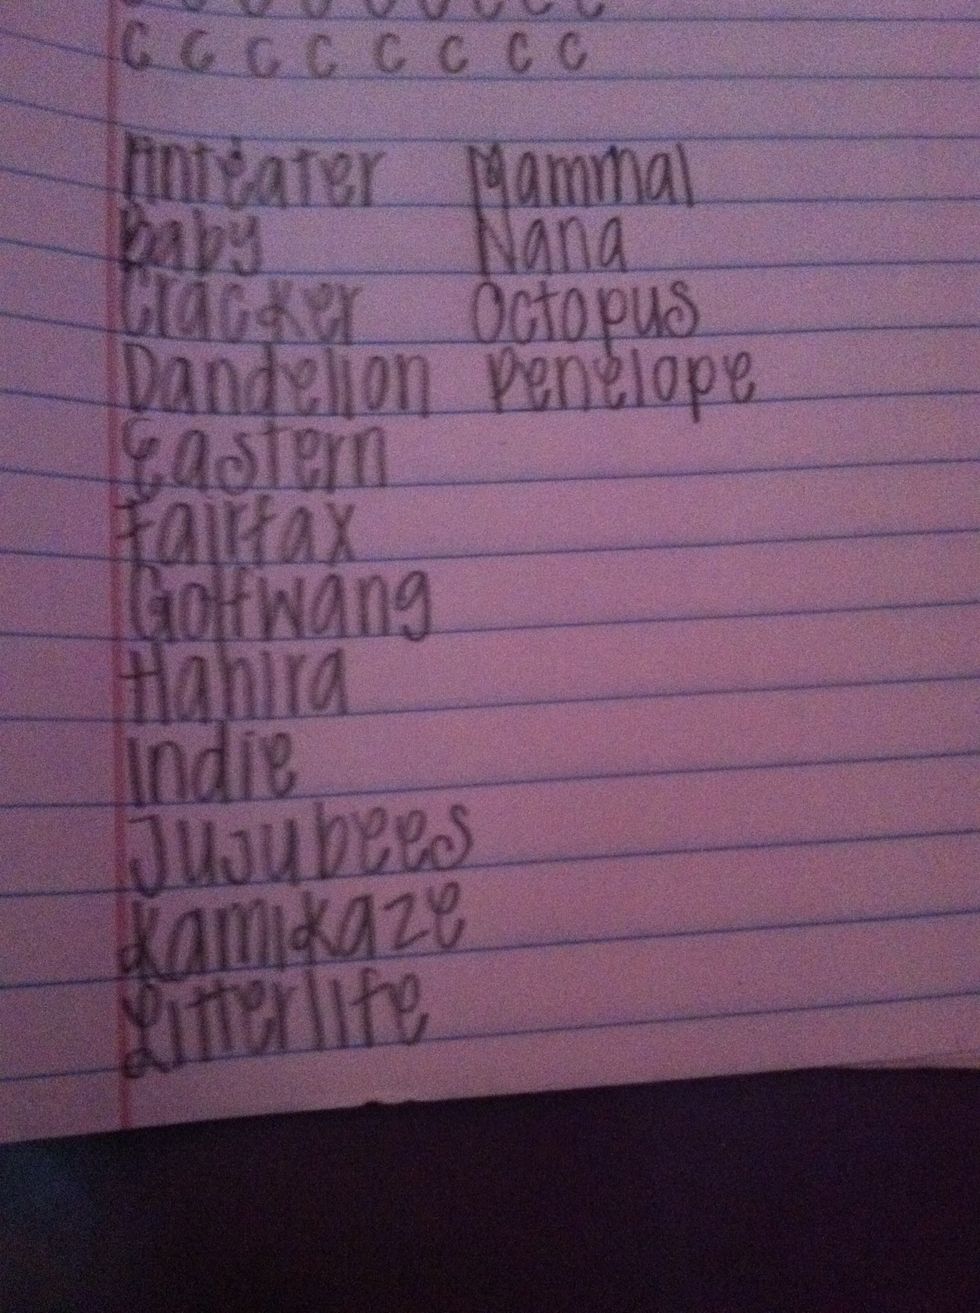 c c c c c c c c
c c c c c c c c
Anteater Mammal
Baby Nana
Cracker Octopus
Dandelion Penelope
Eastern
Fairfax
Golfwang
Hahira
Indie
Jujubees
Kamikaze
Litterlife